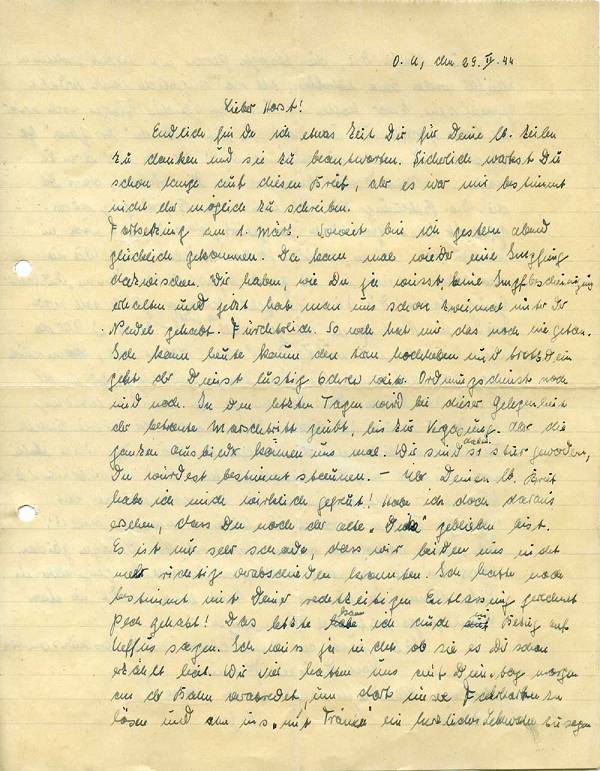 O. U., den 29. II. 44
Lieber Horst!
Endlich finde ich etwas Zeit Dir für Deine lb. Zeilen
zu danken und sie zu beantworten. Sicherlich wartest Du
schon lange auf diesen Brief, aber es war mir bestimmt
nicht eher möglich zu schreiben.
Fortsetzung am 1. März. Soweit bin ich gestern abend
glücklich gekommen. Da kam mal wieder eine Impfung
dazwischen. Wir haben, wie Du ja weisst, keine Impfbescheinigung
erhalten und jetzt hat man uns schon zweimal unter der
Nadel gehabt. Fürchterlich. So weh hat mir das noch nie getan.
Ich kann heute kaum den Arm hochheben und trotzdem
geht der Dienst lustig weiter. Ordnungsdienst noch
und noch. In den letzten Tagen wird bei dieser Gelegenheit
der bekannte Marschtritt geübt, bis zur Vergasung. Aber die
ganzen Ausbilder können uns mal. Wir sind so stur geworden,
Du würdest bestimmt staunen. – Über Deinen lb. Brief
habe ich mich wirklich gefreut! Habe ich doch daraus
ersehen, dass Du noch der alte geblieben bist.
Es ist nur sehr schade, dass wir beiden uns nicht
mehr richtig verabschieden konnten. Ich hatte noch
bestimmt mit Deiner rechtzeitigen Entlassung gerechnet
Pech gehabt! Das letzte kann ich auch mit Bezug auf
sagen. Ich weiss ja nicht ob sie es Dir schon
erzählt hat. Wir vier hatten uns morgen
an der Bahn verabredet, um stets unsere Fahrkarten zu
lösen und um uns „mit Tränen" ein herzliches Lebewohl zu sagen